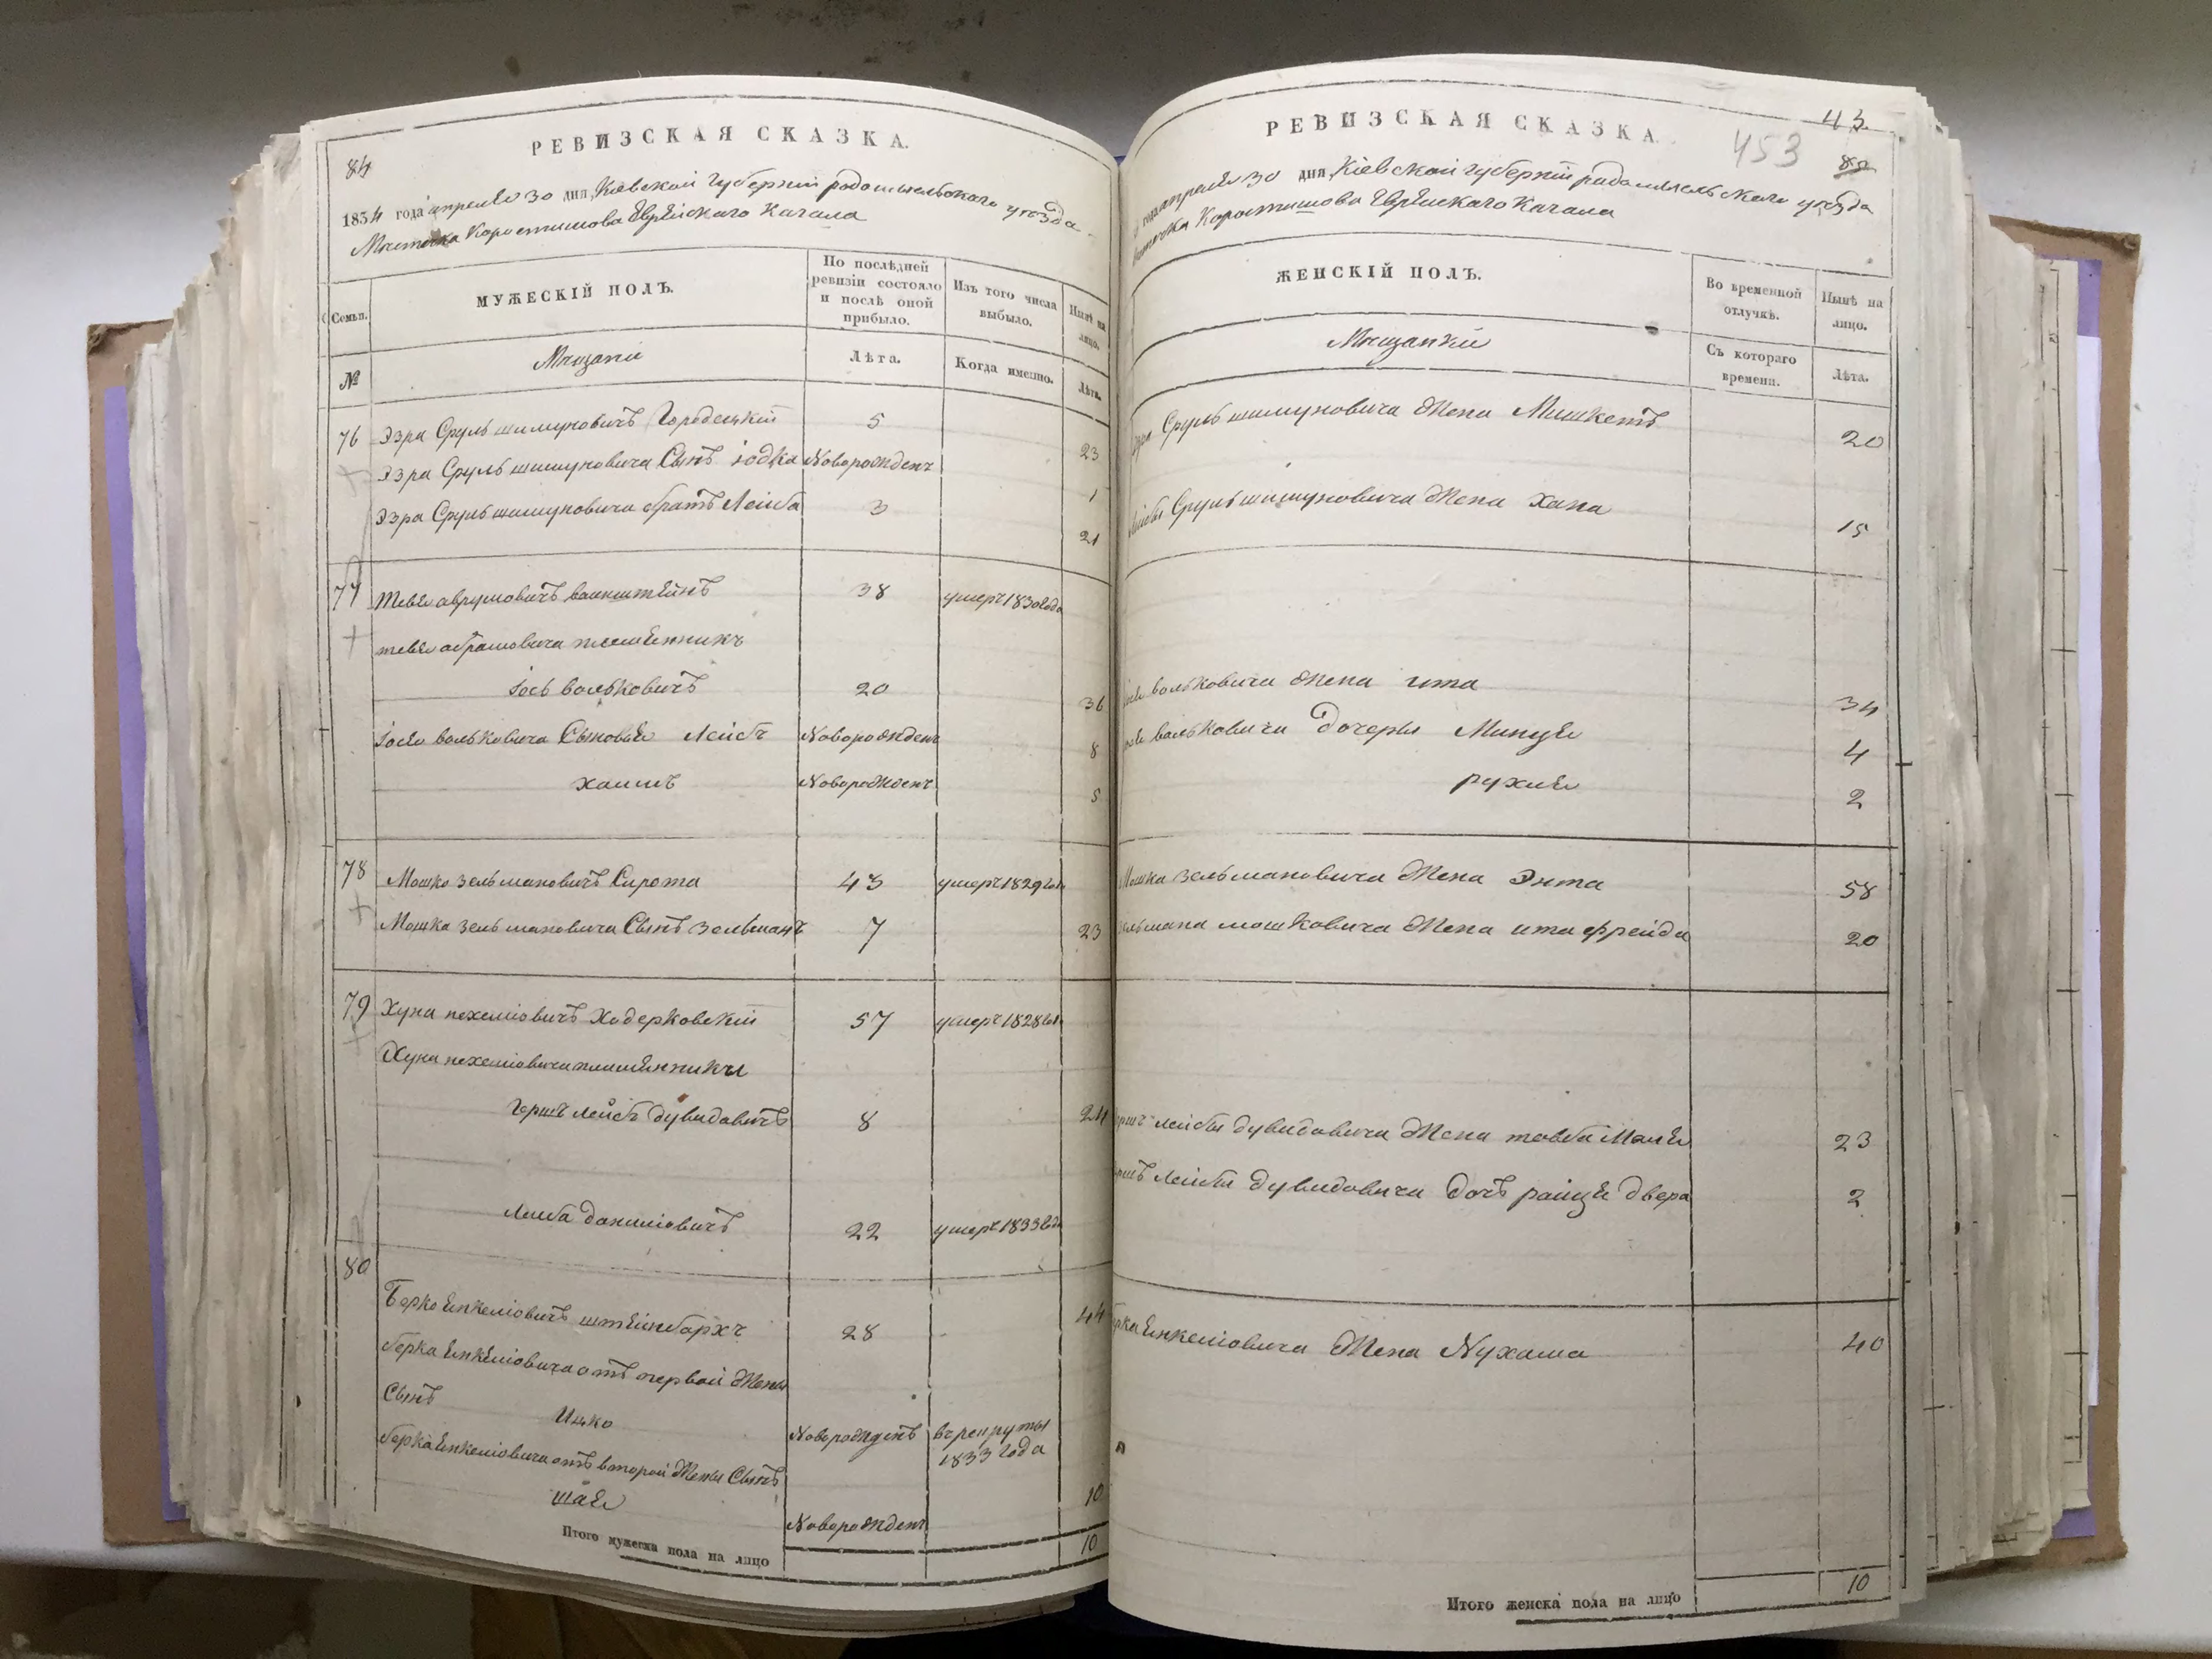 84
РЕВИЗСКАЯ СКАЗКА.
1834 года апреля 30 дня, Кіевской Губерніи радомысльского уезда
Местечка Коростишова Еврейского Кагала
Семьи.
МУЖЕСКІЙ ПОЛЪ.
По послѣдней ревизіи состояло и послѣ оной прибыло.
Изъ того числа выбыло.
Нынѣ на лицо.
№
Мещане
Лѣта.
Когда именно.
Лѣта.
76 Эзра Сруль шимуновичъ Городецкій 5 23
Эзра Сруль шимуновича Сынъ іодка Новорожденъ 1
Эзра Сруль шимуновича братъ Лейба 3 21
77 Тевель аврумовичъ ваинштейнъ 38 умеръ 1830 года
тевеля абрамовича племенникъ
іось вольковичъ 20 36
іоселя вольковича Сыновья Лейбъ Новорожденъ 8
хаимъ Новорожденъ 5
78 Мошко зельмановичъ Сирота 43 умеръ 1829 года
Мошка зельмановича Сынъ зельманъ 7 23
79 Хуна нехеміовичъ Ходерковскій 57 умеръ 1828 года
Хуна нехеміовича племенники
Гершъ лейбъ дувидовичъ 8 24
Лейба даниловичъ 22 умеръ 1833 года
80
Берко Енкеліовичъ штейнбархъ 28 44
берка Енкеліовича отъ первой Жены
Сынъ
Ицко Новорожденъ в рекруты 1833 года
берка Енкеліовича отъ второй Жены Сынъ
шае Новорожденъ 10
Итого мужеска пола на лицо 10
43
453
РЕВИЗСКАЯ СКАЗКА.
года апреля 30 дня, Кіевской губерніи радомысльского уезда
Местечка Коростишова Еврейского Кагала
ЖЕНСКІЙ ПОЛЪ.
Во временной отлучкѣ.
Нынѣ на лицо.
Мещанки
Съ котораго времени.
Лѣта.
Сруль шимуновича Жена Мишкетъ 20
Лейбы Сруль шимуновича Жена Хана 15
вольковича Жена ита 34
вольковича дочеры Минце 4
рухле 2
Мошка зельмановича Жена Энта 58
зельмана мошковича Жена ита фрейда 20
лейбы дувидовича Жена товба Мале 23
лейбы дувидовича дочъ раице двера 2
Енкеліовича Жена Нухама 40
Итого женска пола на лицо 10